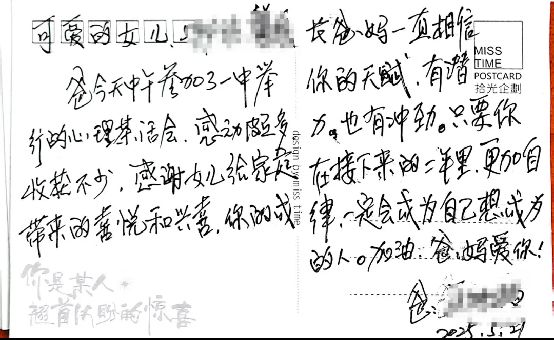 可爱的女儿：
爸今天中午参加了一中举
行的心理茶话会，感动颇多
收获不少，感谢女儿给家庭
带来的喜悦和兴喜，你的成
长爸、妈一直相信
你的天赋，有潜
力，也有冲劲。只要你
在接下来的二年里，更加自
律，一定会成为自己想成为
的人。加油 爸、妈爱你！
爸：
2025.5.21
MISS
TIME
POSTCARD
拾光企劃
design by miss time
你是某人
翘首以盼的惊喜